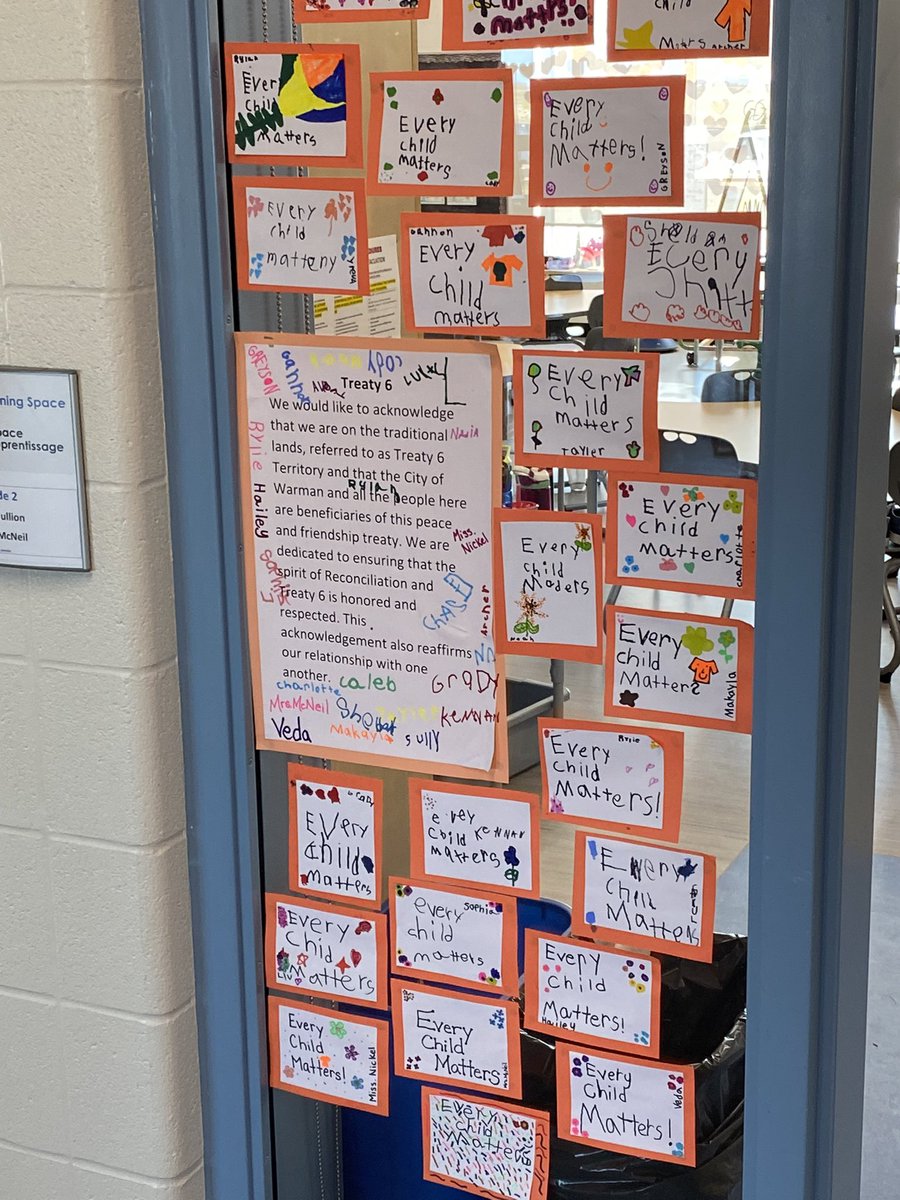 child
Matters!
child
Matters Archer
RYLAN
Every
Child
Matters
Every
child
matters
Every
child
Matters!
GREYSON
Every
child
matteny
Nevaeh
Gannon
Every
child
matters
Sheldon
Every
Treaty 6
We would like to acknowledge
that we are on the traditional
lands, referred to as Treaty 6
Territory and that the City of
Warman and all the people here
are beneficiaries of this peace
and friendship treaty. We are
dedicated to ensuring that the
spirit of Reconciliation and
Treaty 6 is honored and
respected. This
acknowledgement also reaffirms
our relationship with one
another.
GREYSON
Gannon
cody
Rylie
Hailey
RYLAN
Miss. Nickel
CHASE
Archer
caleb
Grady
charlotte
Mrs. McNeil
KENNAN
Makayla
sully
Veda
Every
Child
matters
Tayler
Every
child
Matters
charlotte
Every
child
Maders
Noah
Every
child
Matters
Makayla
Rylie
Every
Child
Matters!
Grady
Every
child
Matters
every
child KENNAN
matters
Every
Child
Matters
Every
Child
Matters
Sophia
every
child
matters
Every
Child
Matters!
Hailey
Every
Child
Matters!
Miss. Nickel
Every
Child
Matters
Every
Child
Matters!
Veda
Every
child
Matters
ning Space
pace
prentissage
de 2
ullion
McNeil